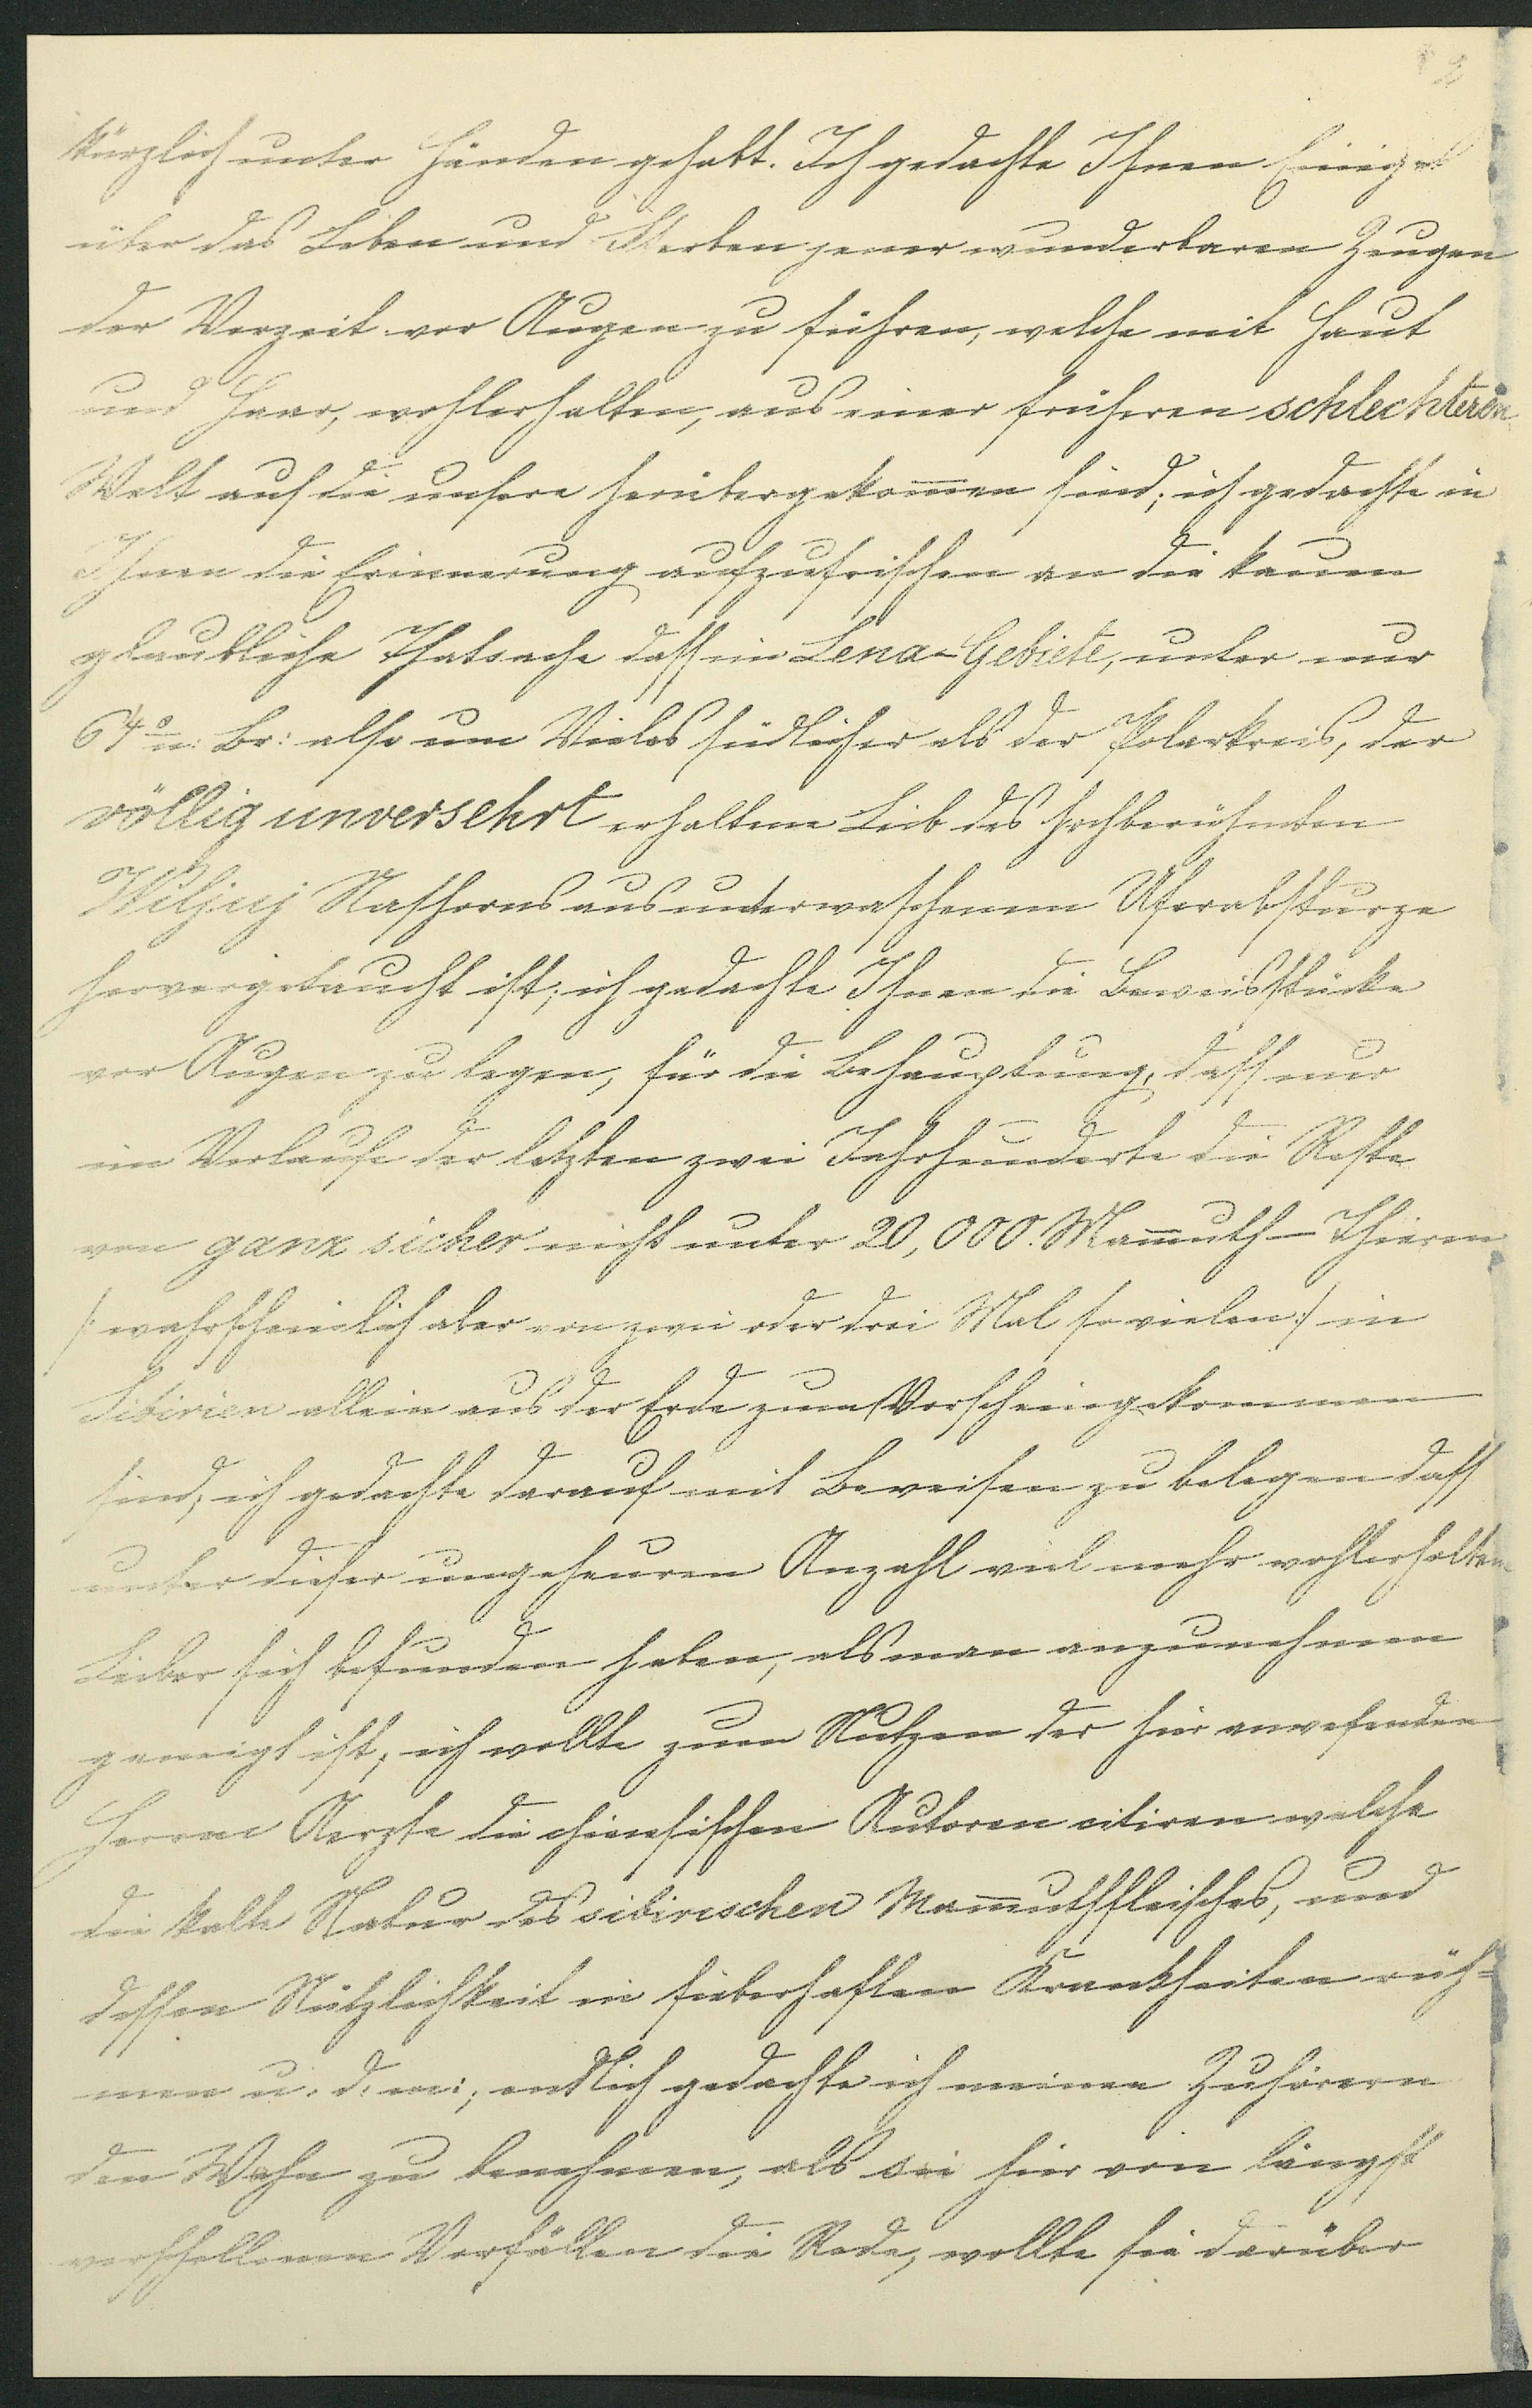 2
kürzlich unter Händen gehabt. Ich gedachte Ihnen Einiges
über das Leben und Sterben jener wunderbaren Zeugen
der Vorzeit vor Augen zu führen, welche mit Haut
und Haar, wohlerhalten, aus einer früheren schlechteren
Welt auf die unsere herübergekom̅en sind; ich gedachte in
Ihnen die Erinnerung aufzufrischen an die kaum
glaubliche Thatsache dass im Lena-Gebiete, unter nur
64° n: Br: also um Vieles südlicher als der Polarkreis, der
völlig unversehrt erhaltene Leib des hochberühmten
Wiljuj Nashorns aus unterwaschenem Uferabsturze
hervorgetaucht ist; ich gedachte Ihnen die Beweisstücke
vor Augen zu legen, für die Behauptung, dass nur
im Verlaufe der letzten zwei Jahrhunderte die Reste
von ganz sicher nicht unter 20,000. Mam̅uth-Thieren
/: wahrscheinlich aber von zwei oder drei Mal so vielen :/ in
Sibirien allein aus der Erde zum Vorschein gekommen
sind; ich gedachte darauf mit Beweisen zu belegen dass
unter dieser ungeheuren Anzahl viel mehr wohlerhaltene
Leiber sich befunden haben, als man anzunehmen
geneigt ist; ich wollte zum Nutzen der hier anwesenden
Herren Aerzte die chinesischen Autoren citiren welche
die kalte Natur des sibirischen Mam̅uthfleisches, und
dessen Nützlichkeit in fieberhaften Krankheiten rüh=
men u. d. m:; endlich gedachte ich meinen Zuhörern
den Wahn zu benehmen, als sei hier von längst
verschollenen Vorfällen die Rede, wollte sie darüber